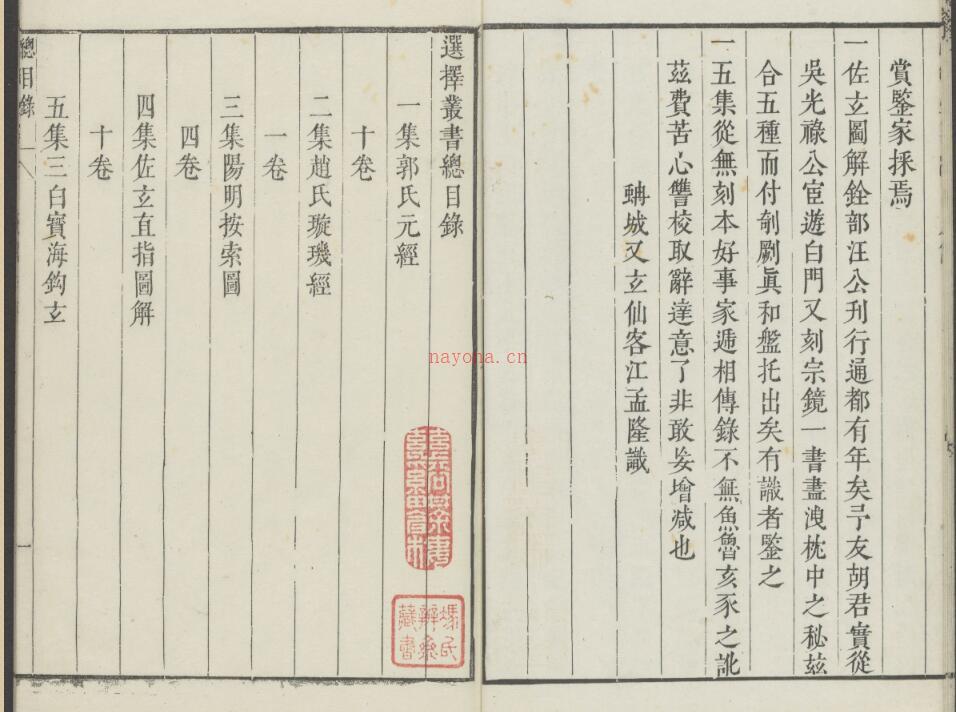 賞鑒家採焉
一佐玄圖解銓部汪公刋行通都有年矣予友胡君實從
吳光祿公宦遊白門又刻宗鏡一書盡洩枕中之秘玆
合五種而付剞劂眞和盤托出矣有識者鑒之
一五集從無刻本好事家遞相傳錄不無魚魯亥豕之訛
玆費苦心讐校取辭達意了非敢妄增減也
蚺城又玄仙客江孟隆識
選擇叢書總目錄
一集郭氏元經
十卷
二集趙氏璇璣經
一卷
三集陽明按索圖
四卷
四集佐玄直指圖解
十卷
五集三白寶海鈎玄
總目錄
一
nayona.cn
馮氏
辨齋
藏書